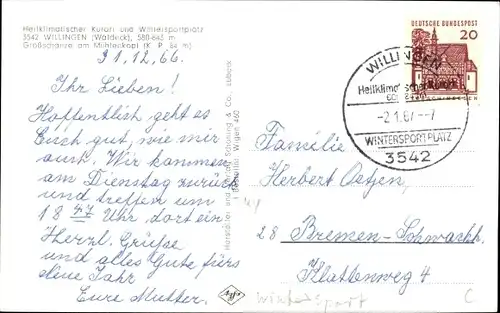 Heilklimatischer Kurort und Wintersportplatz
3542 WILLINGEN (Waldeck), 580-843 m
Großschanze am Mühlenkopf (K. P. 84 m)
31.12.66.
Ihr Lieben!
Hoffentlich geht es
Euch gut, wie mir
auch. Wir kommen
am Dienstag zurück
und treffen um
18 47 Uhr dort ein
Herzl. Grüße
und alles Gute fürs
Neue Jahr
Eure Mutter.
Schöning & Co., Lübeck
DEUTSCHE BUNDESPOST
20
WILLINGEN
Heilklimatischer Kurort
-2.1.67.--7
WINTERSPORTPLATZ
3542
Familie
Herbert
28 Bremen-
4
Wintersport
C